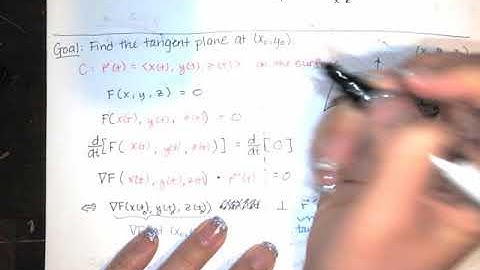 Goal: Find the tangent plane at (x₀, y₀)
C: r⃗(t) = <x(t), y(t), z(t)> on the surf
F(x, y, z) = 0
F(x(t), y(t), z(t)) = 0
d/dt [F(x(t), y(t), z(t))] = d/dt [0]
∇F(x(t), y(t), z(t)) · r⃗'(t) = 0
⇔ ∇F(x(t), y(t), z(t)) ⊥ r⃗'
∇F at (x₀,
tan